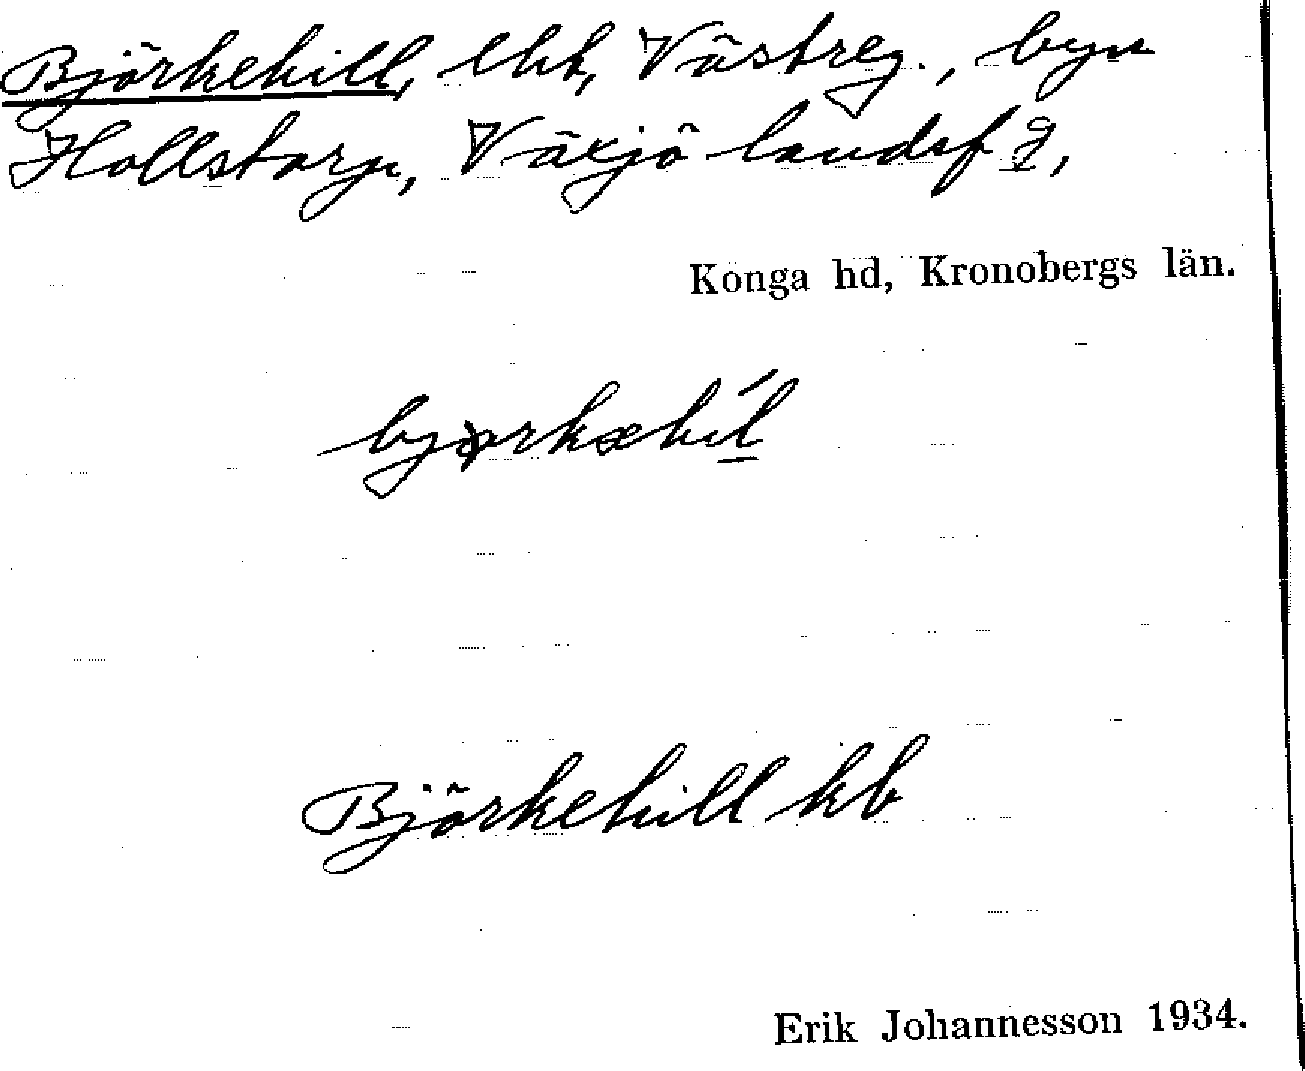 Björkehill, lht, Västreg., byn
Hollstorp, Växjö landsf. g,
Konga hd, Kronobergs län.
bjørkæhíl
Björkehill kb
Erik Johannesson 1934.